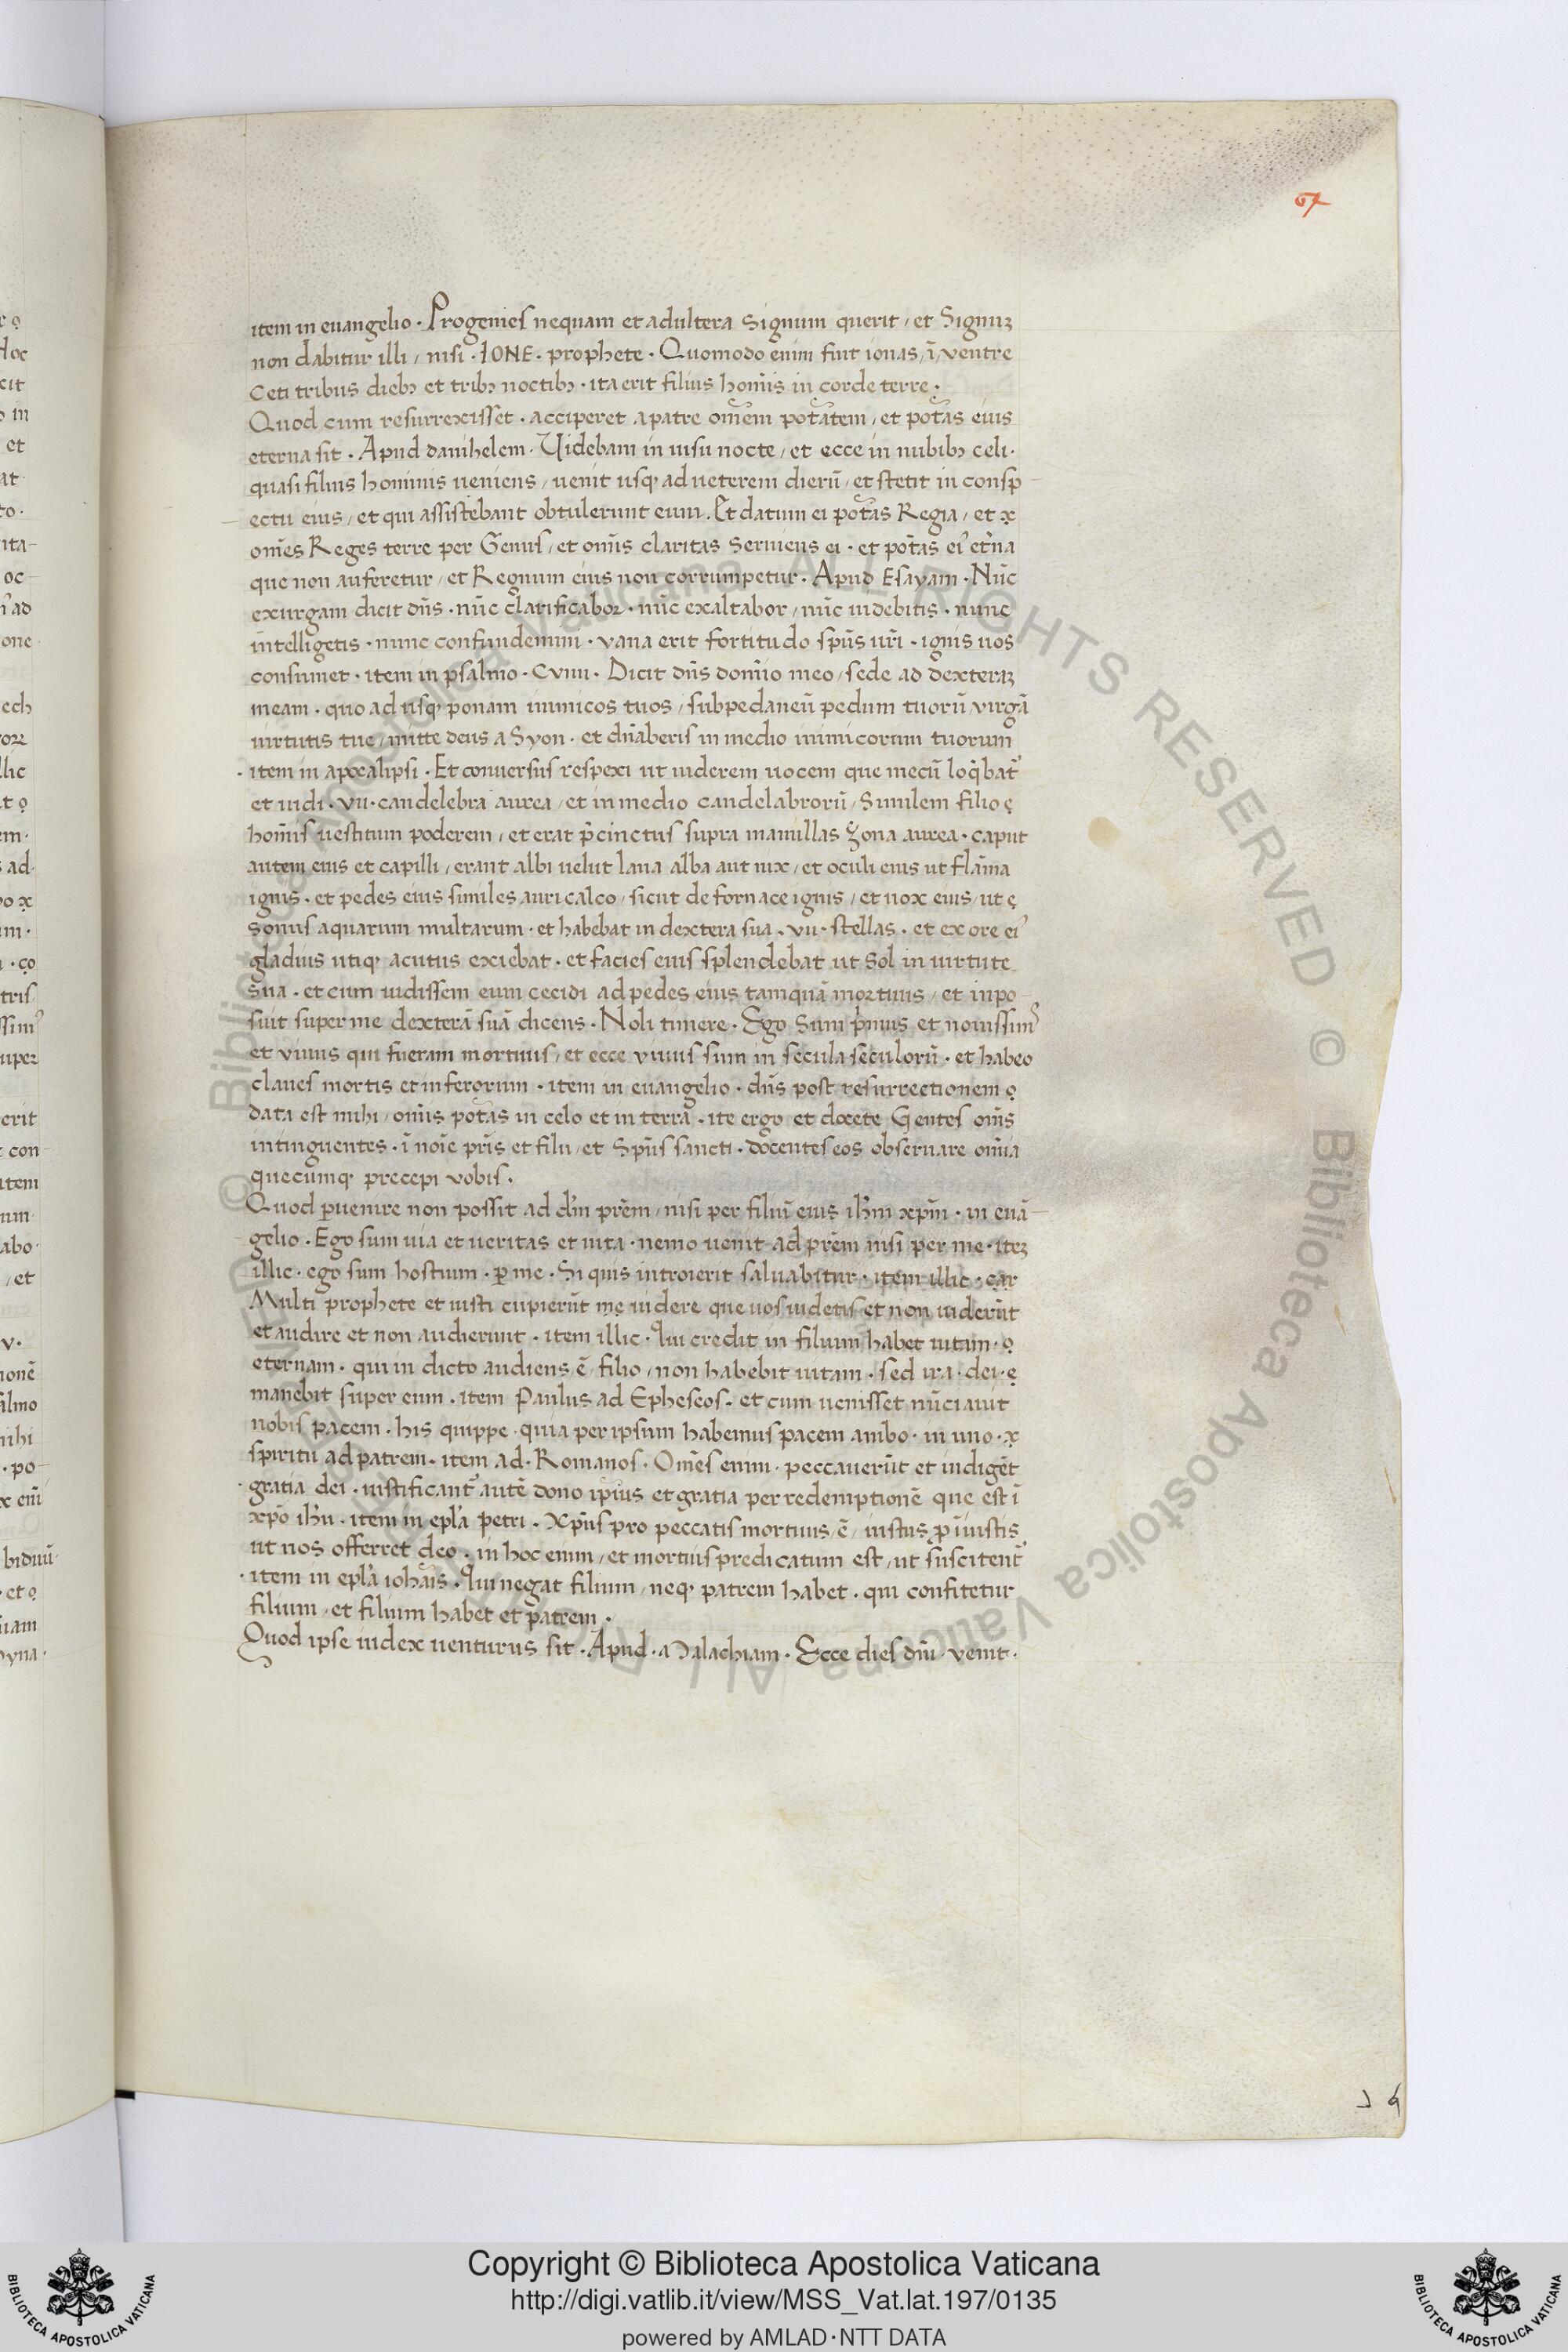 67
item in euangelio · Progenies nequam et adultera signum querit / et Signuꝫ
non dabitur illi / nisi · IONE · prophete · Quomodo enim fuit ionas / ī ventre
Ceti tribus diebꝫ et tribꝫ noctibꝫ · ita erit filius hoīis in corde terre ·
Quod cum resurrexisset · acciperet a patre omēm potātem / et potās eius
eterna sit · Apud danihelem · Uidebam in uisu nocte / et ecce in nubibꝫ celi ·
quasi filius hominis ueniens / uenit usqꝫ ad ueterem dierū / et stetit in consp
ectu eius / et qui assistebant obtulerunt eum · Et datum ei potās Regia / et
omēs Reges terre per Genus / et omīs claritas Seruiens ei · et potās eiꝰ et̄na
que non auferetur / et Regnum eius non corrumpetur · Apud Esayam · Nūc
exurgam dicit dn̄s · nūc clarificabor · nūc exaltabor / nūc uidebitis · nunc
intelligetis · nunc confundemini · vana erit fortitudo sp̄us ur̄i · ignis uos
consumet · item in psalmo · Cviiii · Dicit dn̄s domīo meo / sede ad dexteraꝫ
meam · quo ad usqꝫ ponam inimicos tuos / subpedaneū pedum tuorū / virgā
uirtutis tue / mitte deus a Syon · et dn̄aberis in medio inimicorum tuorum
· item in apocalipsi · Et conuersus respexi ut uiderem uocem que mecū loq̄bat᷑
et uidi · vii · candelebra aurea / et in medio candelabrorū / Similem filio
hoīis uestitum poderem / et erat p̄cinctus supra mamillas zona aurea · caput
autem eius et capilli / erant albi uelut lana alba aut nix / et oculi eius ut flāma
ignis · et pedes eius similes auricalco / sicut de fornace ignis / et uox eius / ut
sonus aquarum multarum · et habebat in dextera sua · vii · stellas · et ex ore eiꝰ
gladius utiqꝫ acutus exiebat · et facies eius splendebat ut Sol in uirtute
sua · et cum uidissem eum cecidi ad pedes eius tamquā mortuus / et inpo
suit super me dexterā suā dicens · Noli timere · Ego sum p̄mus et nouissimꝰ
et viuus qui fueram mortuus / et ecce viuus sum in secula seculorū · et habeo
claues mortis et inferorum · item in euangelio · dn̄s post resurrectionem
data est mihi / omīs potās in celo et in terra · ite ergo et docete Gentes omīs
intinguentes · ī noīe pr̄is et filii / et Sp̄us sancti · docentes eos obseruare omīa
quecumqꝫ precepi vobis ·
Quod ꝑuenire non possit ad dm̄ prēm / nisi per filiū eius ih̄m xp̄m · in euā
gelio · Ego sum uia et ueritas et uita · nemo uenit ad prēm nisi per me · iteꝫ
illic · ego sum hostium · ꝑ me · Si quis introierit saluabitur · item illic ·
Multi prophete et iusti cupierūt uidere que uos uidetis et non uiderūt
et audire et non audierunt · item illic · Qui credit in filium habet uitam ·
eternam · qui in dicto audiens ē / filio / non habebit uitam · sed ira · dei ·
manebit super eum · item Paulus ad Epheseos · et cum uenisset nūciauit
nobis pacem · his quippe · quia per ipsum habemus pacem ambo · in uno ·
spiritu ad patrem · item ad · Romanos · Omēs enim · peccauerūt et indigēt
gratia dei · iustificant᷑ autē dono ipīus et gratia per redemptionē que est ī
xp̄o ih̄u · item in epl̄a petri · Xp̄us pro peccatis mortuus / ē / iustus ꝓ īiustis
ut nos offerret deo · in hoc enim / et mortuis predicatum est / ut suscitent᷑
· item in epl̄a ioh̄ais · Qui negat filium / neqꝫ patrem habet · qui confitetur
filium · et filium habet et patrem ·
Quod ipse iudex uenturus sit · Apud · Malachiam · Ecce dies dn̄i · venit ·
© Biblioteca Apostolica Vaticana ALL RIGHTS RESERVED © Biblioteca Apostolica Vaticana
Copyright © Biblioteca Apostolica Vaticana
http://digi.vatlib.it/view/MSS_Vat.lat.197/0135
powered by AMLAD·NTT DATA
BIBLIOTECA APOSTOLICA VATICANA
BIBLIOTECA APOSTOLICA VATICANA